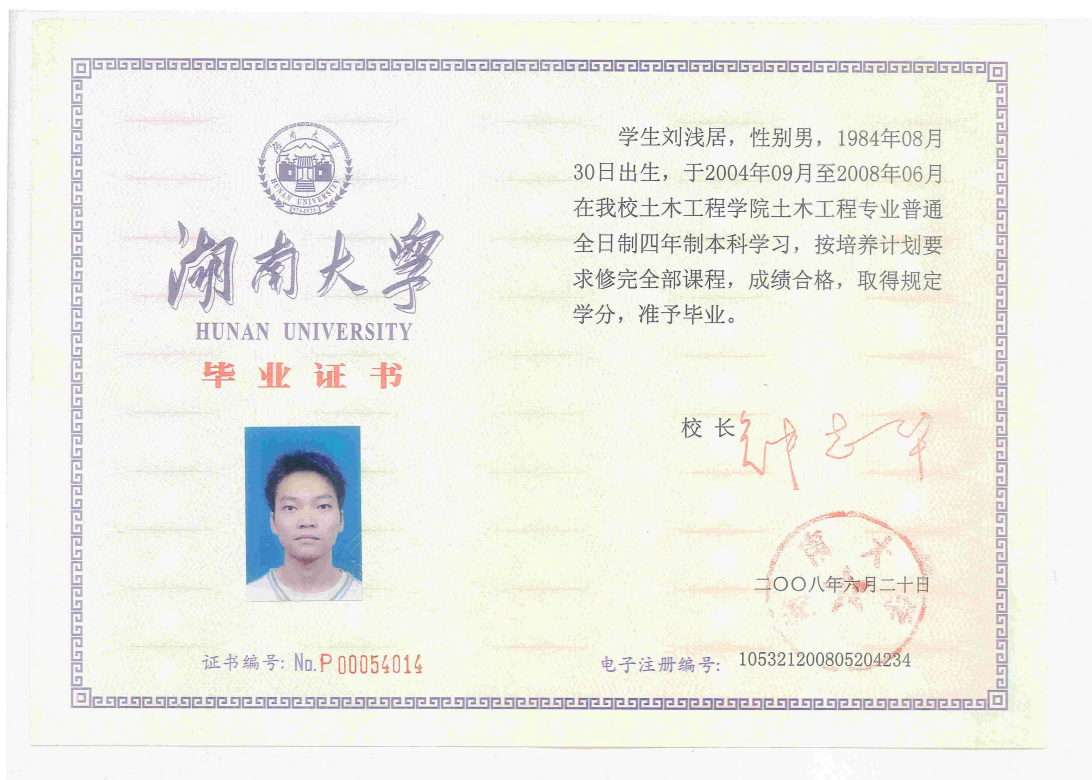 湖南大学
HUNAN UNIVERSITY
湖南大学
HUNAN UNIVERSITY
毕业证书
证书编号: No.P00054014
学生刘浅居，性别男，1984年08月
30日出生，于2004年09月至2008年06月
在我校土木工程学院土木工程专业普通
全日制四年制本科学习，按培养计划要
求修完全部课程，成绩合格，取得规定
学分，准予毕业。
校 长
钟志华
二〇〇八年六月二十日
电子注册编号: 105321200805204234